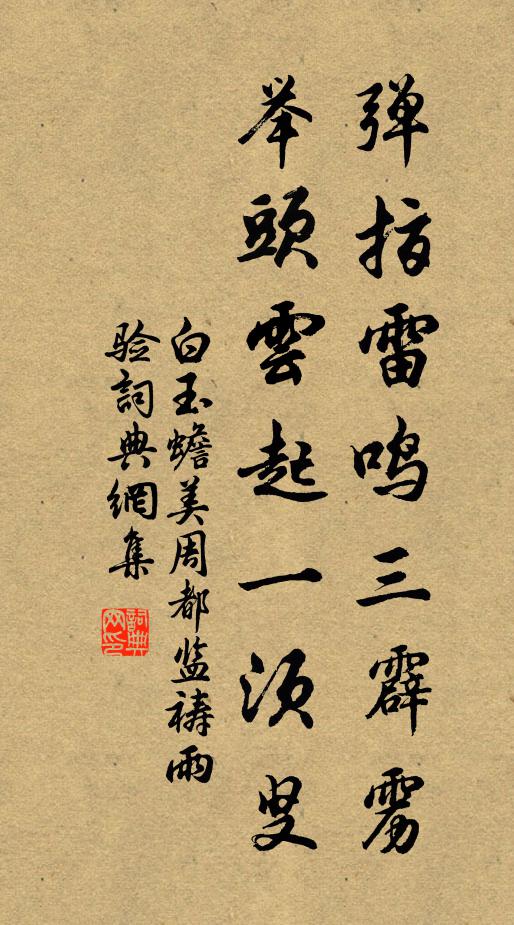 弹指雷鸣三霹雳
举頭雲起一须臾
白玉蟾美周都监祷雨
验詞典網集
詞典
网印